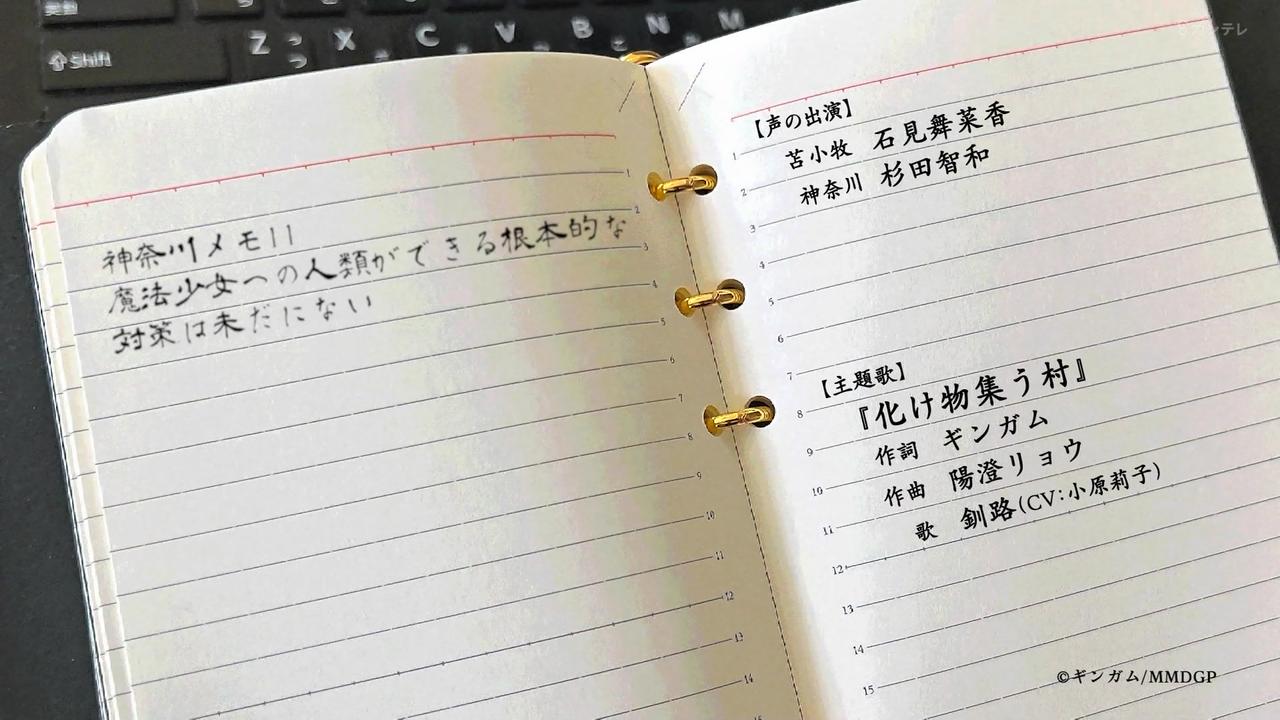 Shift
Z っ X C V B こ N M
つ
神奈川メモ11
魔法少女への人類ができる根本的な
対策は未だにない
【声の出演】
苫小牧 石見舞菜香
神奈川 杉田智和
【主題歌】
『化け物集う村』
作詞 ギンガム
作曲 陽澄リョウ
歌 釧路(CV:小原莉子)
1
2
3
4
5
6
7
8
9
10
11
12
13
14
1
2
3
4
5
6
7
8
9
10
11
12
13
14
15
©ギンガム/MMDGP